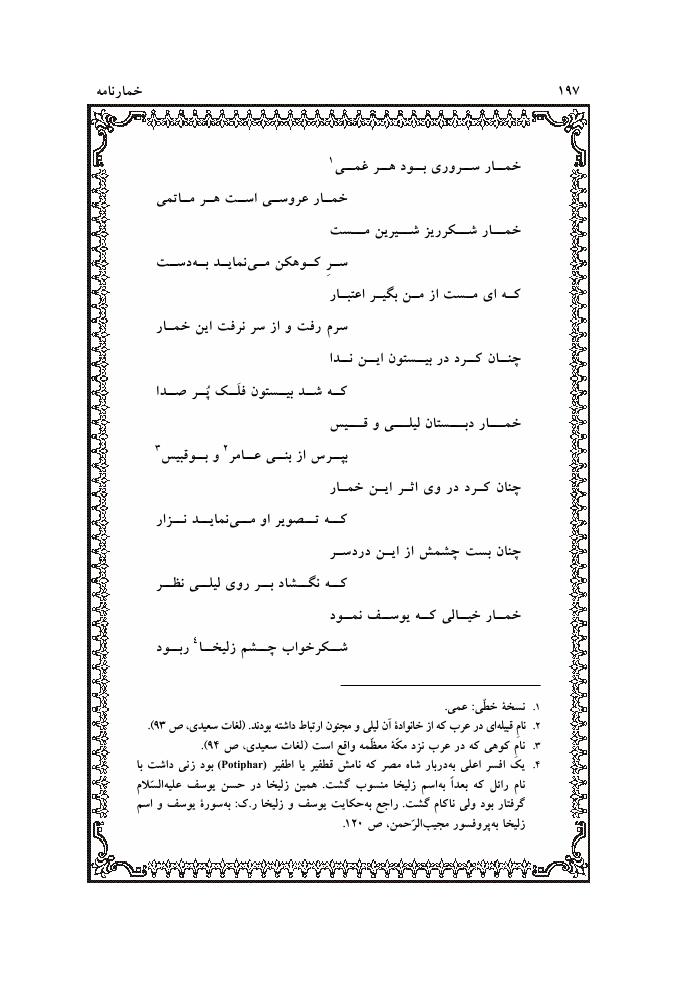 ۱۹۷ خمارنامه
خمار سروری بود هر غمی۱
خمار عروسی است هر ماتمی
خمار شکرریز شیرین مست
سرِ کوهکن می‌نماید به‌دست
که ای مست از من بگیر اعتبار
سرم رفت و از سر نرفت این خمار
چنان کرد در بیستون این ندا
که شد بیستون فلَک پُر صدا
خمار دبستان لیلی و قیس
بپرس از بنی عامر۲ و بوقبیس۳
چنان کرد در وی اثر این خمار
که تصویر او می‌نماید نزار
چنان بست چشمش از این دردسر
که نگشاد بر روی لیلی نظر
خمار خیالی که یوسف نمود
شکرخواب چشم زلیخا۴ ربود
۱. نسخهٔ خطّی: عمی.
۲. نامِ قبیله‌ای در عرب که از خانوادهٔ آن لیلی و مجنون ارتباط داشته بودند. (لغات سعیدی، ص ۹۳).
۳. نامِ کوهی که در عرب نزد مکّهٔ معظّمه واقع است (لغات سعیدی، ص ۹۴).
۴. یک افسر اعلی به‌دربار شاه مصر که نامش قطفیر یا اطفیر (Potiphar) بود زنی داشت با
نام رائل که بعداً به‌اسم زلیخا منسوب گشت. همین زلیخا در حسن یوسف علیه‌السّلام
گرفتار بود ولی ناکام گشت. راجع به‌حکایت یوسف و زلیخا ر.ک: به‌سورهٔ یوسف و اسم
زلیخا به‌پروفسور مجیب‌الرّحمن، ص ۱۲۰.